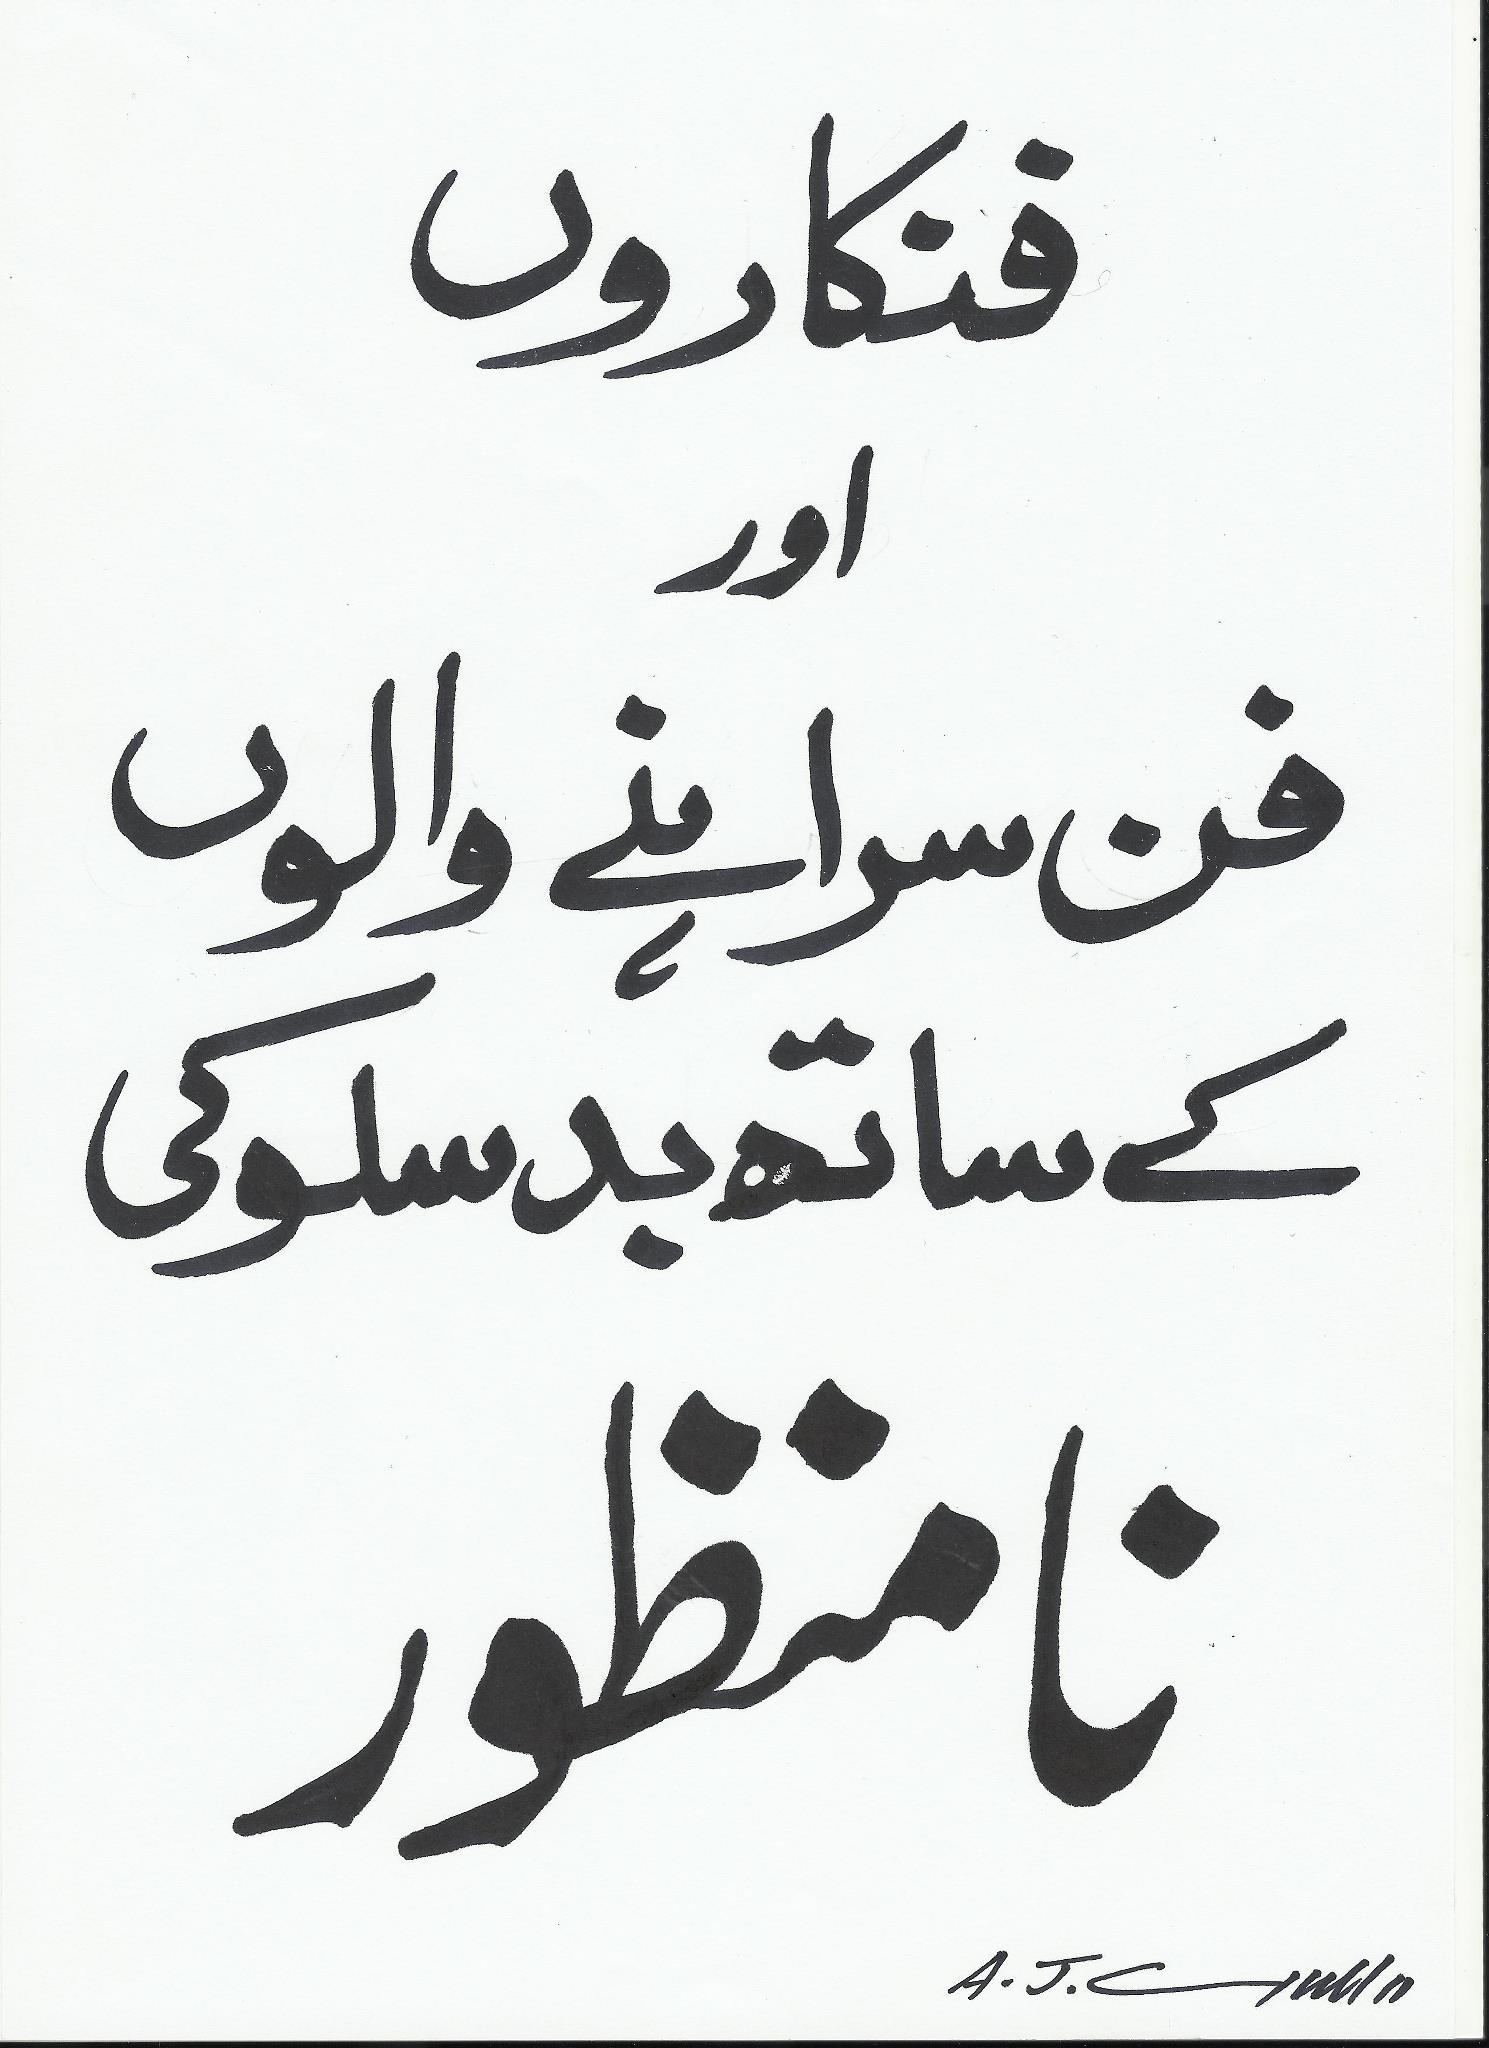 فنکاروں
اور
فن سراہنے والوں
کے ساتھ بد سلوکی
نا منظور
A. J.